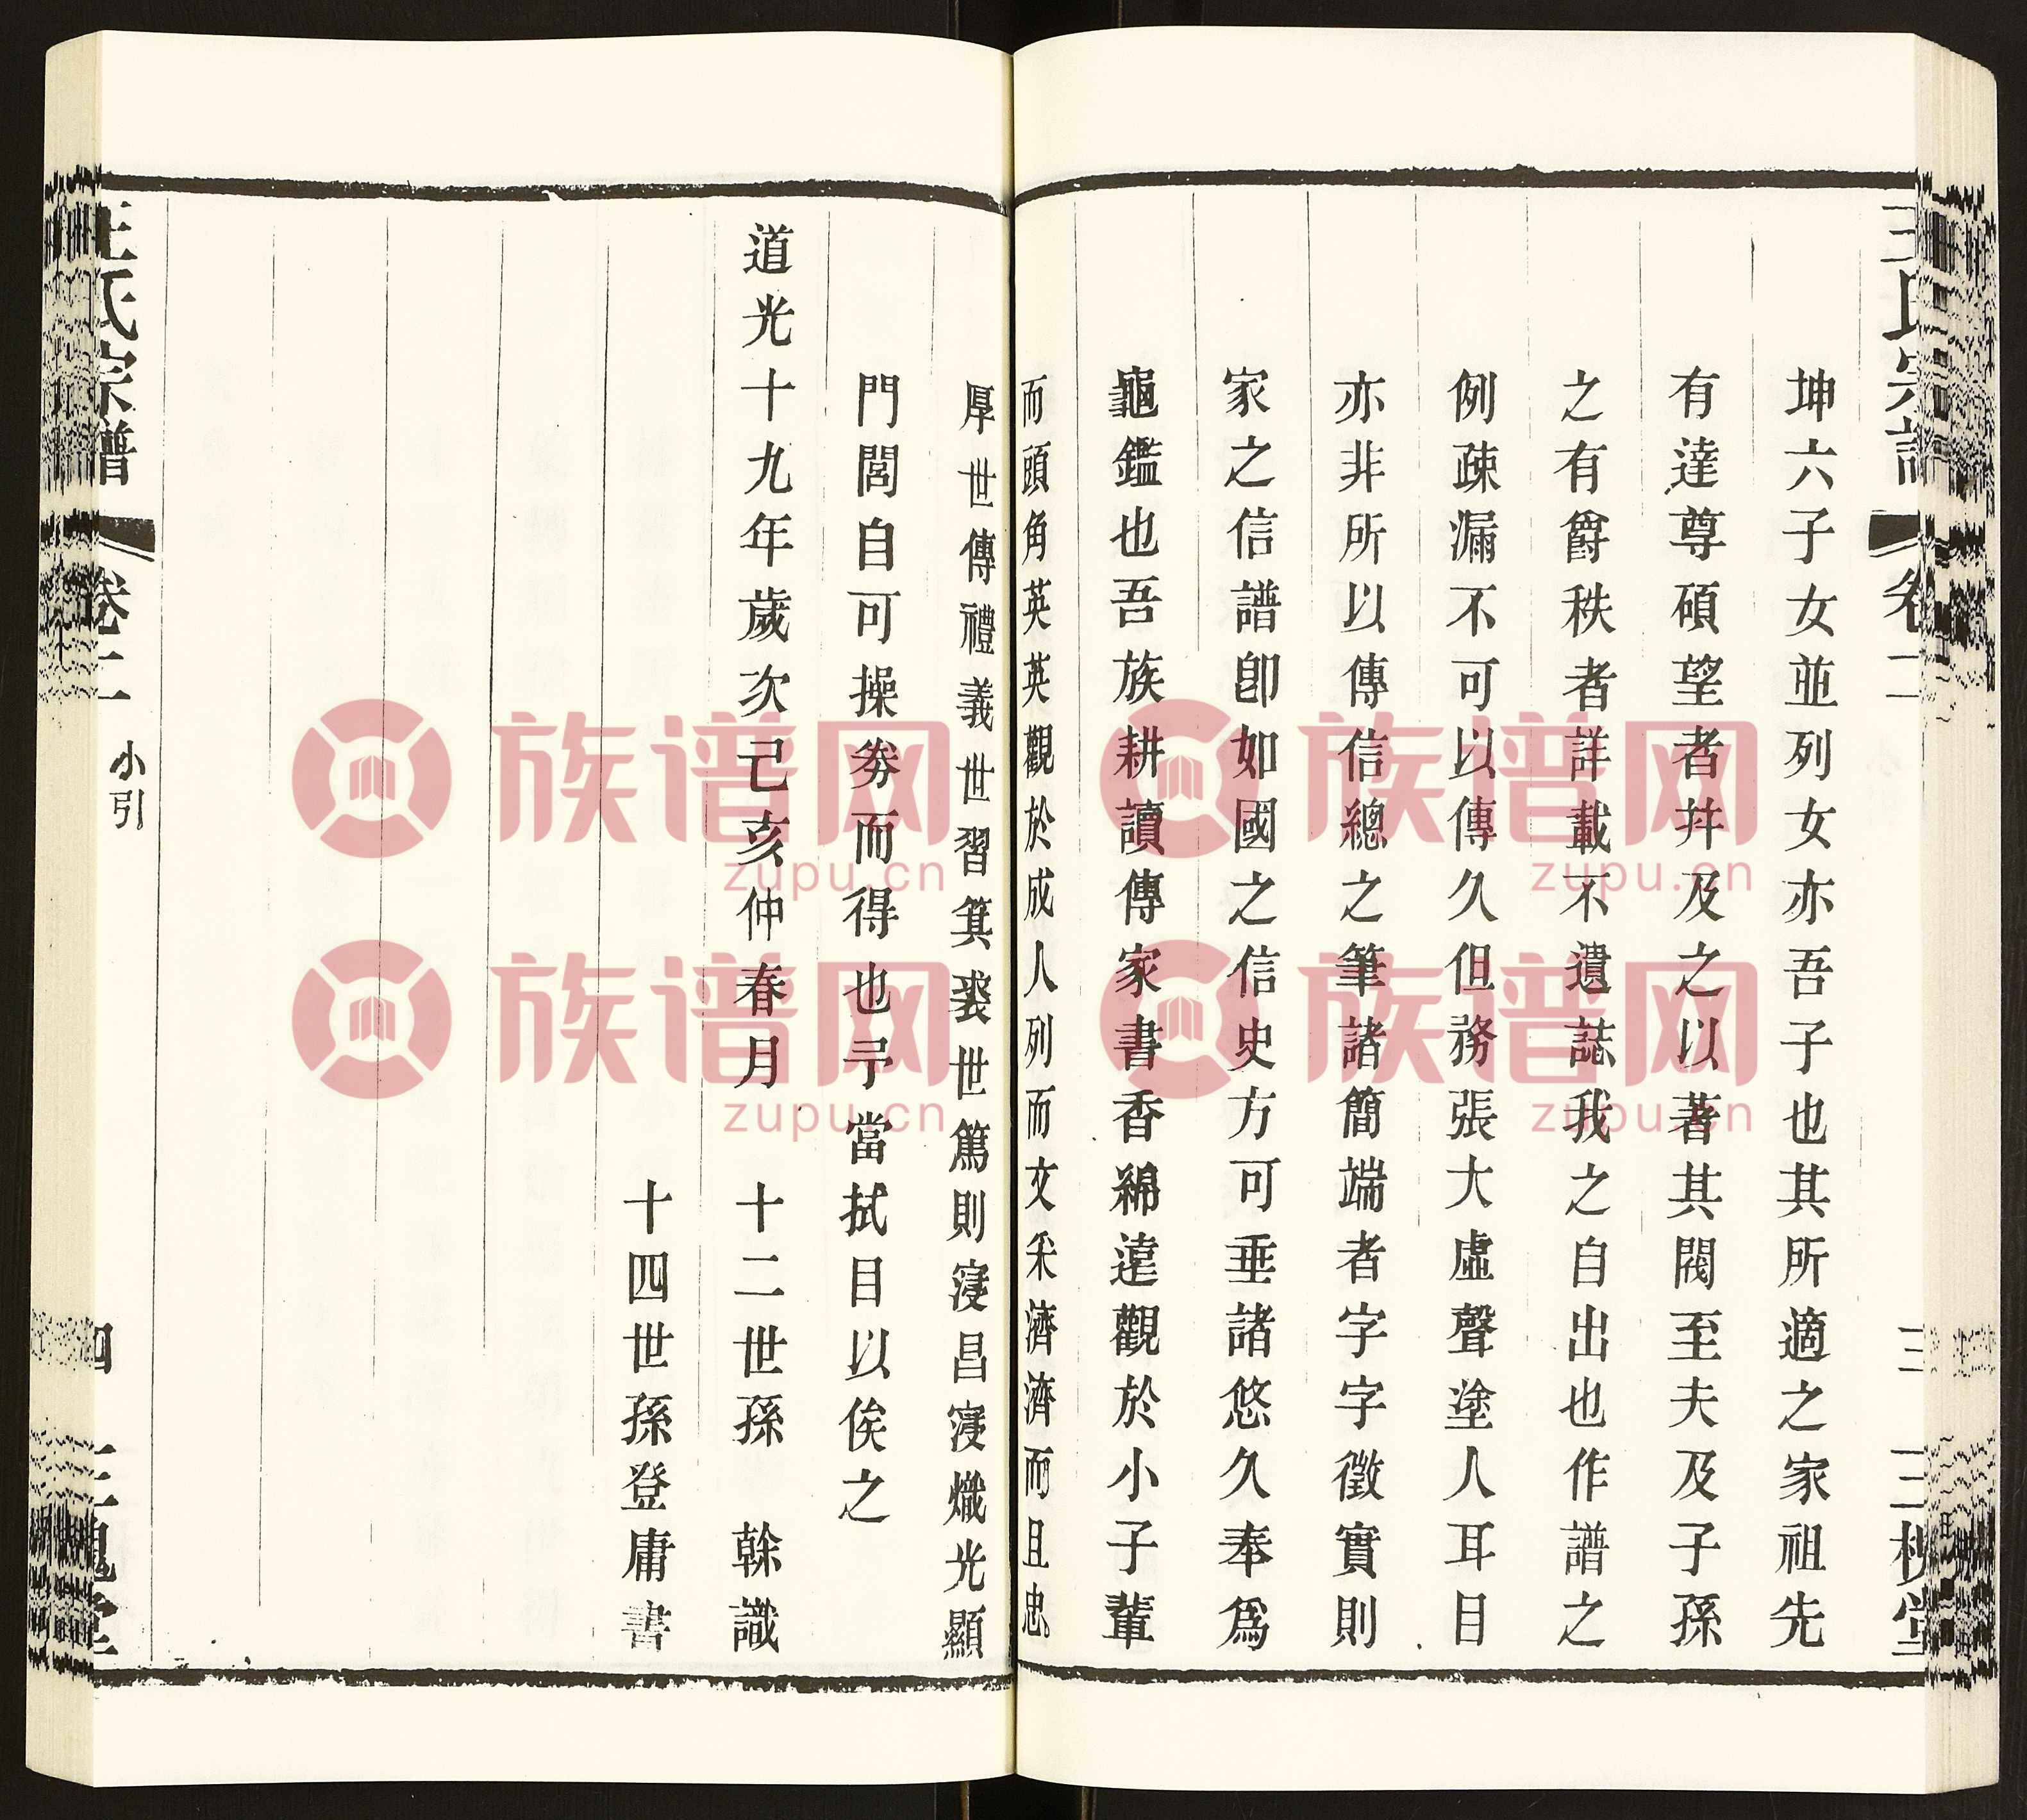 王氏宗譜 卷二 三 三槐堂
坤六子女並列女亦吾子也其所適之家祖先
有達尊碩望者幷及之以著其閥至夫及子孫
之有爵秩者詳載不遺誌我之自出也作譜之
例疎漏不可以傳久但務張大虛聲塗人耳目
亦非所以傳信總之筆諸簡端者字字徵實則
家之信譜卽如國之信史方可垂諸悠久奉爲
龜鑑也吾族耕讀傳家書香綿遠觀於小子輩
而頭角英英觀於成人列而文采濟濟而且忠
厚世傳禮義世習箕裘世篤則寖昌寖熾光顯
門閭自可操券而得也予當拭目以俟之
道光十九年歲次己亥仲春月 十二世孫 榦識
十四世孫登庸書
王氏宗譜 卷二 小引 四 三槐堂
族谱网
zupu.cn
族谱网
zupu.cn
族谱网
zupu.cn
族谱网
zupu.cn